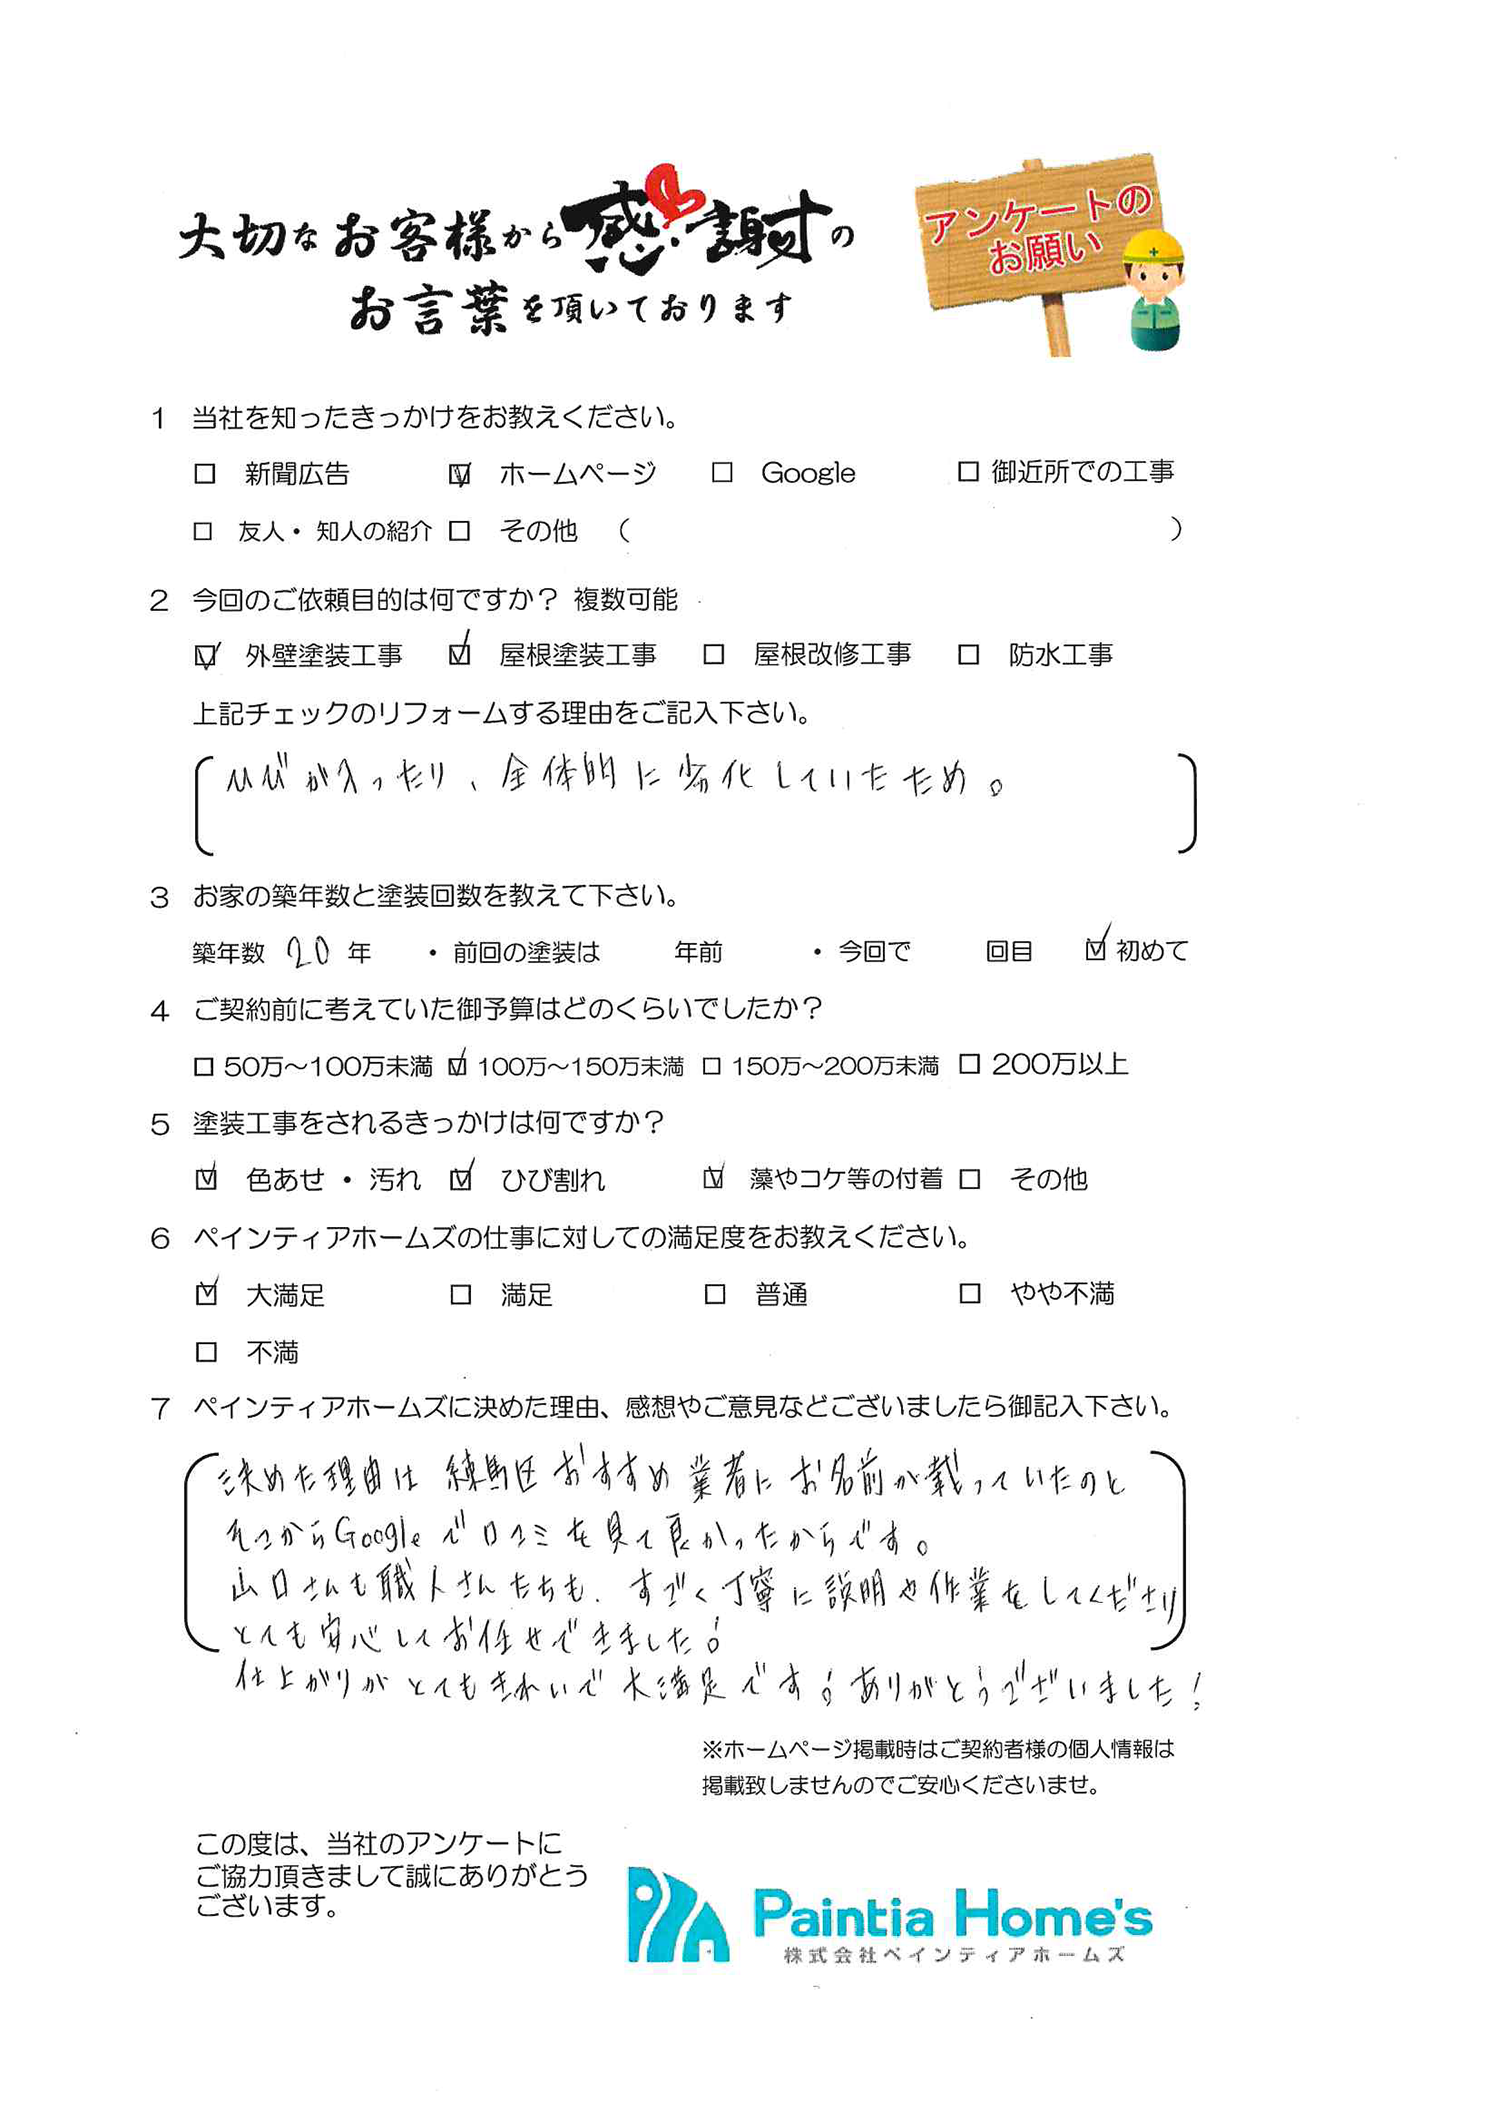 大切なお客様から感謝の
お言葉を頂いております
アンケートの
お願い
1 当社を知ったきっかけをお教えください。
□ 新聞広告 ☑ ホームページ □ Google □ 御近所での工事
□ 友人・知人の紹介 □ その他 ( )
2 今回のご依頼目的は何ですか？ 複数可能
☑ 外壁塗装工事 ☑ 屋根塗装工事 □ 屋根改修工事 □ 防水工事
上記チェックのリフォームする理由をご記入下さい。
ひびが入ったり、全体的に劣化していたため。
3 お家の築年数と塗装回数を教えて下さい。
築年数 20 年 ・前回の塗装は 年前 ・今回で 回目 ☑初めて
4 ご契約前に考えていた御予算はどのくらいでしたか？
□ 50万～100万未満 ☑ 100万～150万未満 □ 150万～200万未満 □ 200万以上
5 塗装工事をされるきっかけは何ですか？
☑ 色あせ・汚れ ☑ ひび割れ ☑ 藻やコケ等の付着 □ その他
6 ペインティアホームズの仕事に対しての満足度をお教えください。
☑ 大満足 □ 満足 □ 普通 □ やや不満
□ 不満
7 ペインティアホームズに決めた理由、感想やご意見などございましたら御記入下さい。
決めた理由は 練馬区おすすめ業者にお名前が載っていたのと
そこからGoogleで口コミを見て良かったからです。
山口さんも職人さんたちも、すごく丁寧に説明や作業をしてくださり
とても安心してお任せできました！
仕上がりがとてもきれいで大満足です！ありがとうございました！
※ホームページ掲載時はご契約者様の個人情報は
掲載致しませんのでご安心くださいませ。
この度は、当社のアンケートに
ご協力頂きまして誠にありがとう
ございます。
Paintia Home's
株式会社ペインティアホームズ